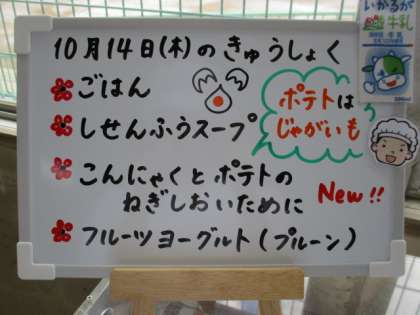 10月14日(木)のきゅうしょく
ごはん
しせんふうスープ
ポテトは
じゃがいも
こんにゃくとポテトの
ねぎしおいために
New!!
フルーツヨーグルト(プルーン)
いかるが
牛乳